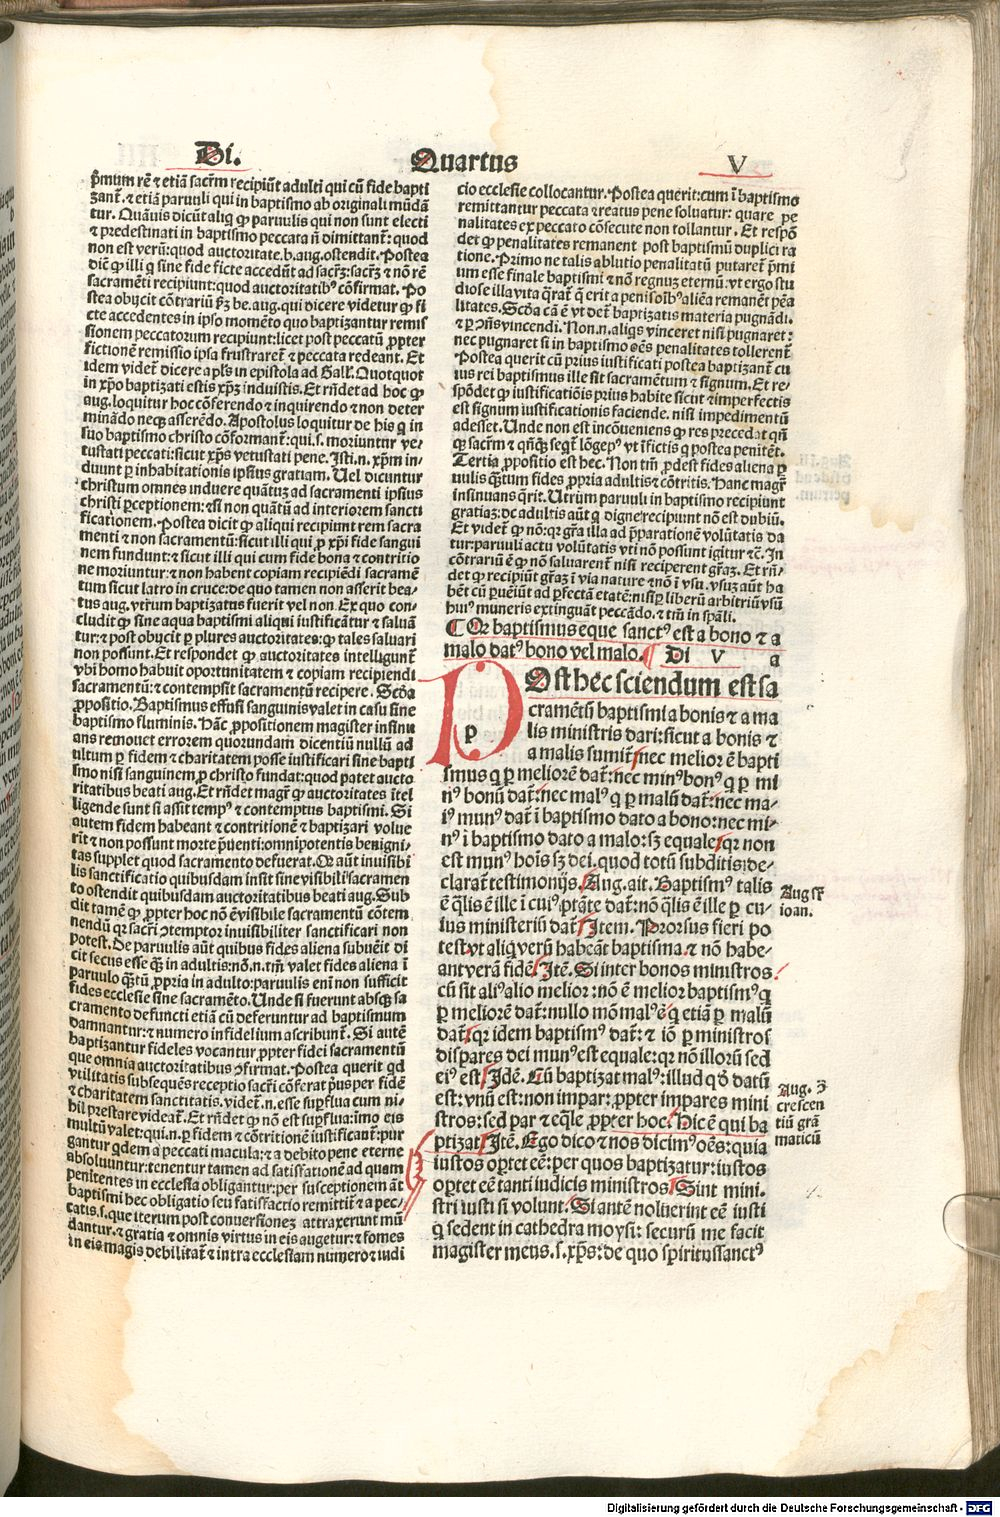 Di. Quartus V
p̃mum rē ⁊ etiā sacr̃m recipiūt adulti qui cū fide bapti
zant̃. ⁊ etiā paruuli qui in baptismo ab originali mūdā
tur. Quāuis dicūt aliq̃ ꝙ paruulis qui non sunt electi
⁊ predestinati in baptismo peccata n̄ dimittant̃: quod
non est verū: quod auctoritate.b.aug.ostendit. Postea
dic̃ ꝙ illi q̃ sine fide ficte accedūt ad sacr̃ꝫ: sacr̃ꝫ ⁊ nō rē
sacramēti recipiunt: quod auctoritatibꝰ cōfirmat. Po
stea obijcit cōtrariū p̃ꝫ be.aug.qui dicere videtur ꝙ fi
cte accedentes in ipso momēto quo baptizantur remis
sionem peccatorum recipiunt: licet post peccatū ꝓpter
fictionē remissio ipsa frustraret̃ ⁊ peccata redeant. Et
idem videt̃ dicere apl̃s in epistola ad Gall̃. Quotquot
in xp̃o baptizati estis xp̃ꝫ induistis. Et rñdet ad hoc ꝙ
aug. loquitur hoc cōferendo ⁊ inquirendo ⁊ non deter
minādo neqꝫ asserēdo. Apostolus loquitur de his q̃ in
suo baptismo christo cōformant̃: qui.s. moriuntur ve-
tustati peccati: sicut xp̃s vetustati pene. Isti.n. xp̃m in-
duunt ꝑ inhabitationis ipsius gratiam. Uel dicuntur
christum omnes induere quātuꝫ ad sacramenti ipsius
christi ꝑceptionem: etsi non quātū ad interiorem sancti
ficationem. Postea dicit ꝙ aliqui recipiunt rem sacra
menti ⁊ non sacramentū: sicut illi qui ꝓ xp̃i fide sangui
nem fundunt: ⁊ sicut illi qui cum fide bona ⁊ contritio
ne moriuntur: ⁊ non habent copiam recipiēdi sacramē
tum sicut latro in cruce: de quo tamen non asserit bea-
tus aug. vtrum baptizatus fuerit vel non. Ex quo con-
cludit ꝙ sine aqua baptismi aliqui iustificātur ⁊ saluā
tur: ⁊ post obijcit ꝑ plures auctoritates: ꝙ tales saluari
non possunt. Et respondet ꝙ auctoritates intelligunt̃
vbi homo habuit oportunitatem ⁊ copiam recipiendi
sacramentū: ⁊ contempsit sacramentū recipere. Scd̃a
ꝓpositio. Baptismus effusi sanguinis valet in casu sine
baptismo fluminis. Hāc ꝓpositionem magister insinu
ans remouet errorem quorundam dicentiū nullū ad
ultum ꝑ fidem ⁊ charitatem posse iustificari sine bapti
smo nisi sanguinem ꝓ christo fundat: quod patet aucto
ritatibus beati aug. Et rñdet magr̃ ꝙ auctoritates ītel
ligende sunt si assit tempꝰ ⁊ contemptus baptismi. Si
autem fidem habeant ⁊ contritionē ⁊ baptizari volue
rīt ⁊ non possunt morte p̃uenti: omnipotentis benigni-
tas supplet quod sacramento defuerat. Qꝛ aūt inuisibi
lis sanctificatio quibusdam insit sine visibili sacramen
to ostendit quibusdam auctoritatibus beati aug. Sub
dit tamē ꝙ ꝓpter hoc nō ē visibile sacramentū cōtem
nendū qꝛ sacri ↄtemptor inuisibiliter sanctificari non
potest. De paruulis aūt quibus fides aliena subuēit di
cit secus esse qꝫ̄ in adultis: nō.n.tm̄ valet fides aliena ī
paruulo qꝫ̄tū ꝓpria in adulto: paruulis eni non sufficit
fides ecclesie sine sacramēto. Unde si fuerunt absqꝫ sa
cramento defuncti etiā cū deferuntur ad baptismum
damnantur: ⁊ numero infidelium ascribunt̃. Si autē
baptizantur fideles vocantur ꝓpter fidei sacramentū
que omnia auctoritatibus ↄfirmat. Postea querit qd̃
vtilitatis subsequēs receptio sacr̃i cōferat p̃us per fidē
⁊ charitatem sanctitatis. videt̃.n.esse supflua cum ni-
hil prestare videat̃. Et rñdet ꝙ nō est supflua: imo eis
multū valet: qui.n.ꝑ fidem ⁊ cōtritionē iustificant̃: pur
gantur q̃dem a peccati macula: ⁊ a debito pene eterne
absoluuntur: tenentur tamen ad satisfationē ad quam
penitentes in ecclesia obligantur: per susceptionem āt
baptismi hec obligatio seu satisfactio remittit̃ ⁊ a pec-
catis.s.que iterum post conuersionez attraxerunt mū
dantur. ⁊ gratia ⁊ omnis virtus in eis augetur: ⁊ fomes
in eis magis debilitat̃ ⁊ intra ecclesiam numero ⁊ iudi
cio ecclesie collocantur. Postea querit: cum ī baptismo
remittantur peccata ⁊ reatus pene soluatur: quare pe
nalitates ex peccato cōsecute non tollantur. Et respō
det ꝙ penalitates remanent post baptismū duplici ra
tione. Primo ne talis ablutio penalitatū putaret̃ p̃mi
um esse finale baptismi ⁊ nō regnuꝫ eternū: vt ergo stu
diose illa vita q̃rat̃ q̃ erit a penis oībꝰ aliēa remanēt pēa
litates. Scd̃a cā ē vt det̃ baptizatis materia pugnādi.
⁊ ꝑ ↄñs vincendi. Non.n.aliqs vinceret nisi pugnaret:
nec pugnaret si in baptismo oēs penalitates tollerent̃
Postea querit cū prius iustificati postea baptizant̃ cu
ius rei baptismus ille sit sacramētum ⁊ signum. Et re-
spōdet ꝙ iustificatiōis prius habite sicut ⁊ imperfectis
est signum iustificationis faciende. nisi impedimentū
adesset. Unde non est incōueniens ꝙ res precedat qñ
ꝙ sacr̃m ⁊ qñqꝫ seqt̃ lōgepꝰ vt ī fictis q̃ postea penitēt.
Tertia ꝓpositio est hec. Non tm̄ ꝓdest fides aliena ꝑ
uulis qꝫ̄tum fides ꝓpria adultis ⁊ cōtritis. Hanc magr̃
insinuans q̃rit. Utrum paruuli in baptismo recipiunt
gratiaꝫ: de adultis aūt q̃ digne recipiunt nō est dubiū.
Et videt̃ ꝙ nō: qꝛ gr̃a illa ad p̃parationē volūtatis da
tur: paruuli actu volūtatis vti nō possunt igitur ⁊c̃. In
cōtrariū ē ꝙ nō saluarent̃ nisi reciperent gr̃aꝫ. Et rñ-
det ꝙ recipiūt gr̃aꝫ ī via nature ⁊ nō ī vsu. vsuꝫ aūt ha
bēt cū ꝑuēiūt ad ꝑfectā etatē: nisi ꝑ liberū arbitriū vsū
huiꝰ muneris extinguāt peccādo. ⁊ tm̄ in sp̃ali.
¶ Qꝛ baptismus eque sanctꝰ est a bono ⁊ a
malo datꝰ bono vel malo. ¶ Di V a
POst hec sciendum est sa
cramētū baptismi a bonis ⁊ a ma
lis ministris dari: sicut a bonis ⁊
a malis sumit̃: nec melior ē bapti
smus q̃ ꝑ meliorē dat̃: nec minꝰ bonꝰ q̃ ꝑ mi
nꝰ bonū dat̃: nec malꝰ q̃ ꝑ malū dat̃: nec ma-
iꝰ munꝰ dat̃ ī baptismo dato a bono: nec mi-
nꝰ ī baptismo dato a malo: sꝫ equale: qꝛ non
est munꝰ hoīs sꝫ dei. quod totū subditis: de-
clarat̃ testimonijs. Aug. ait. Baptismꝰ talis
ē q̃lis ē ille ī cuiꝰ ptāte dat̃: nō q̃lis ē ille ꝑ cu-
ius ministeriū dat̃. Item. Prorsus fieri po
test vt aliq̃ verū habeāt baptisma. ⁊ nō habe-
ant verā fidē. Itē. Si inter bonos ministros
cū sit aliꝰ alio melior: nō ē melior baptismꝰ q̃
ꝑ meliorē dat̃: nullo mō malꝰ ē q̃ etiā ꝑ malū
dat̃: qꝛ idem baptismꝰ dat̃: ⁊ iō ꝑ ministros
dispares dei munꝰ est equale: qꝛ nō illorū sed
eiꝰ est. Idē. Cū baptizat malꝰ: illud qd̃ datū
est: vnū est: non impar: ꝓpter impares mini
stros: sed par ⁊ eq̃le ꝓpter hoc. Hic ē qui ba
ptizat. Itē. Ego dico ⁊ nos dicimꝰ oēs: quia
iustos oꝑtet eē: per quos baptizatur: iustos
oꝑtet eē tanti iudicis ministros. Sint mini.
stri iusti si volunt. Si antē noluerint eē iusti
q̃ sedent in cathedra moysi: securū me facit
magister meus.s.xp̃s: de quo spiritussanctꝰ
Aug sr̃
ioan.
Aug. ꝫ
crescen
tiū grā
maticū
Digitalisierung gefördert durch die Deutsche Forschungsgemeinschaft - DFG